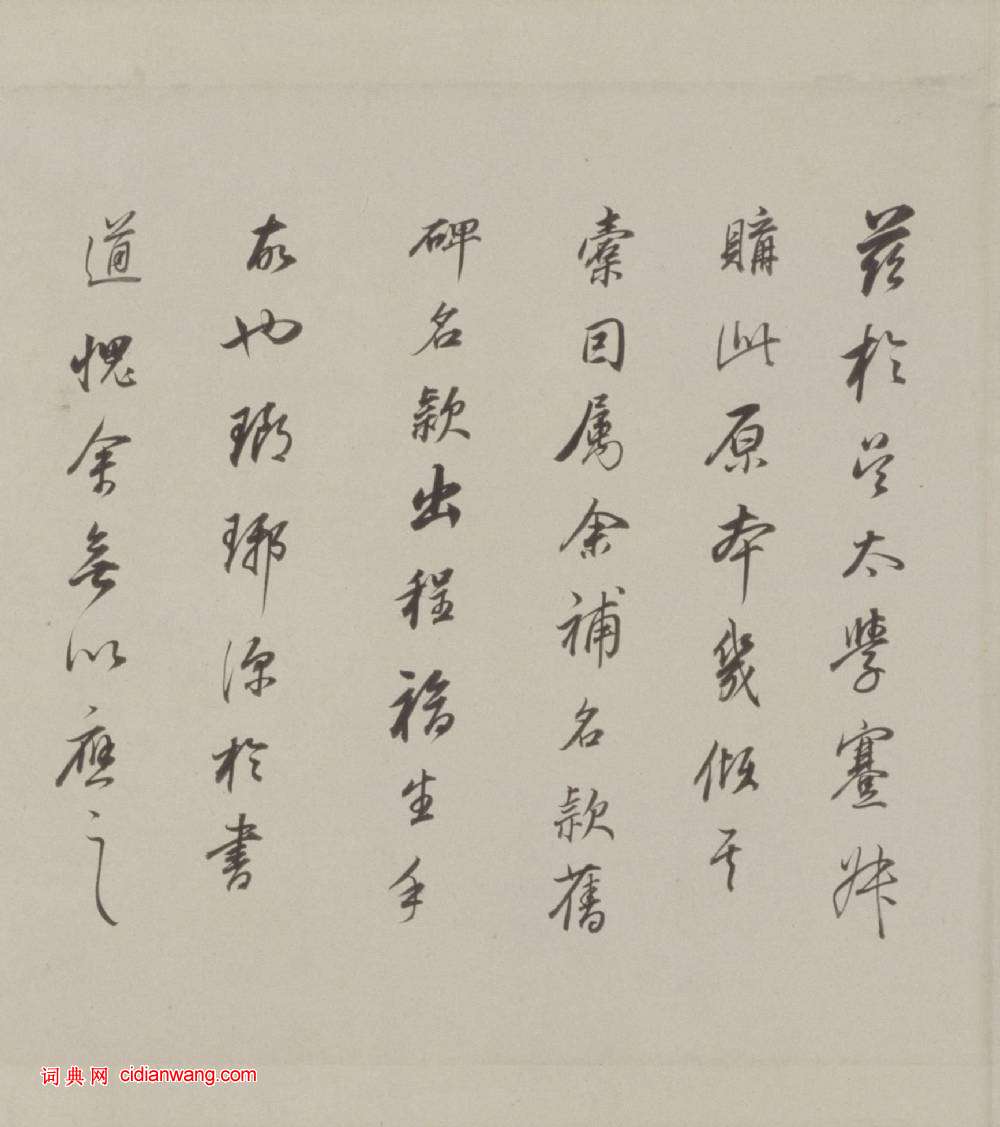 茲於吳太學蹇叔
購此原本幾傾其
橐因屬余補名款舊
碑名款出程福生手
故也瑯琊深於書
道愧余無以應之
词典网 cidianwang.com